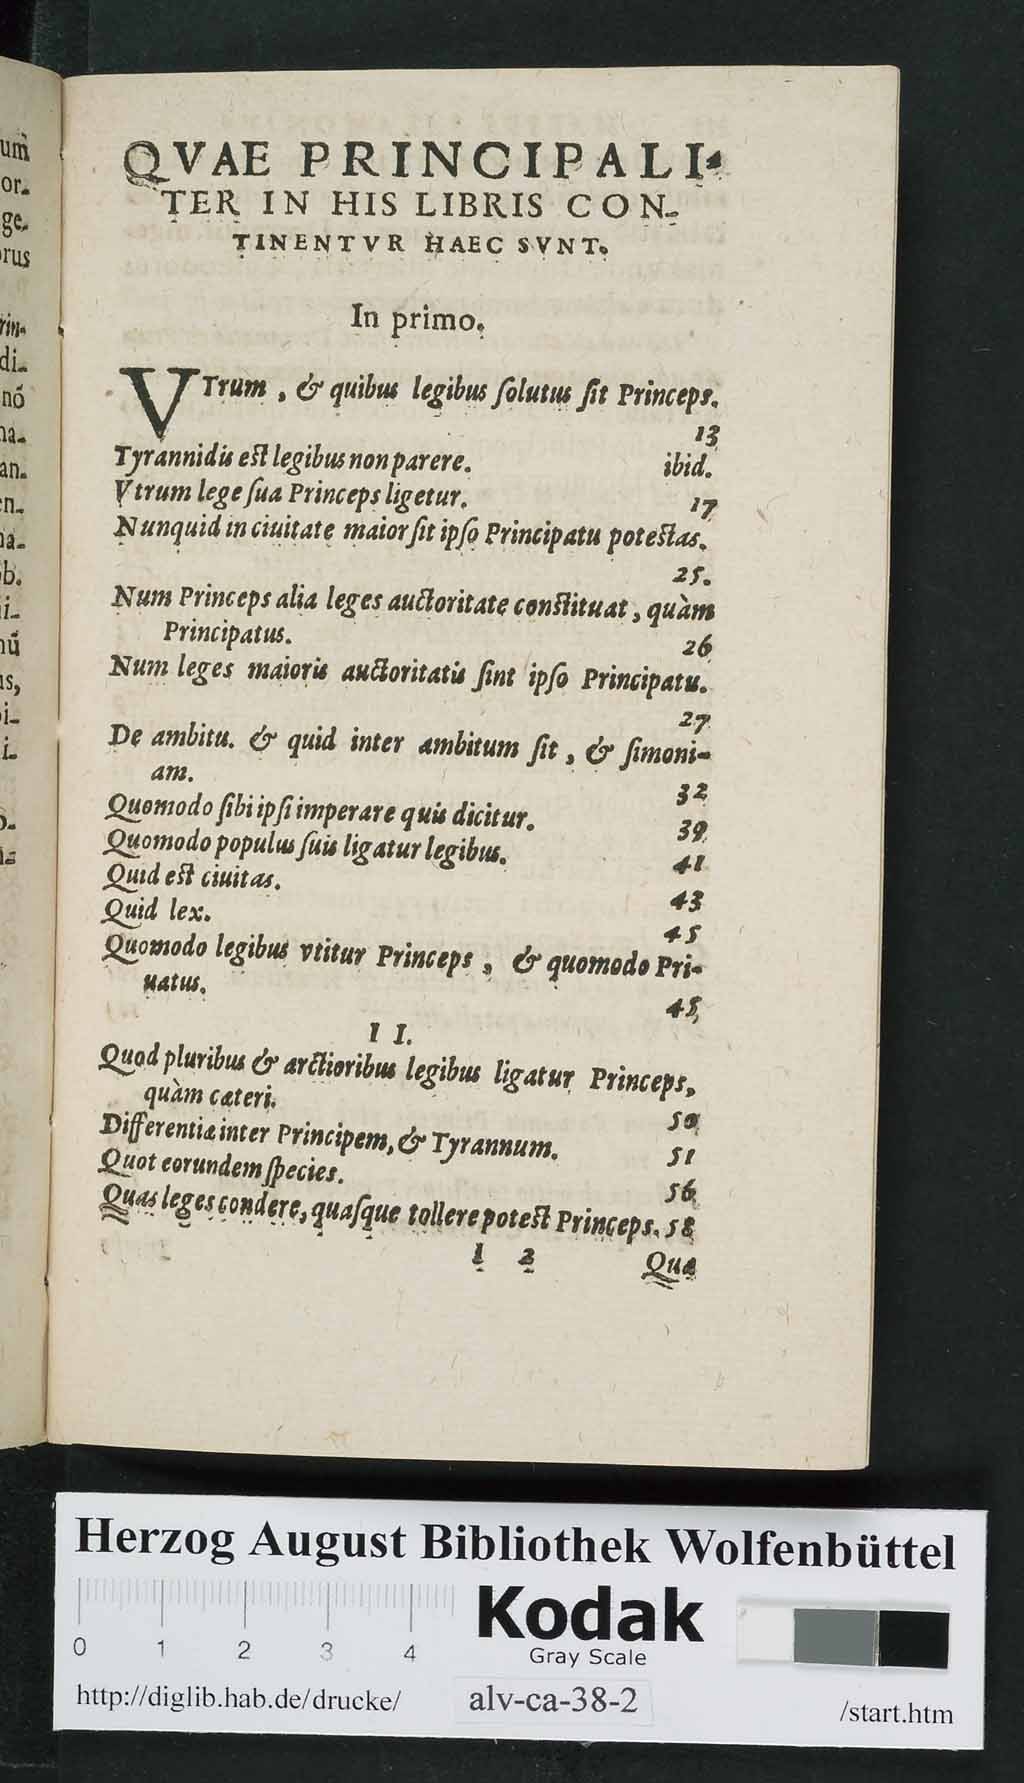 QVAE PRINCIPALI-
TER IN HIS LIBRIS CON-
TINENTVR HAEC SVNT.
In primo.
VTrum, & quibus legibus ſolutus ſit Princeps.
13
Tyrannidis eſt legibus non parere. ibid.
Vtrum lege ſua Princeps ligetur. 17
Nunquid in ciuitate maior ſit ipſo Principatu poteſtas.
25.
Num Princeps alia leges auctoritate conſtituat, quàm
Principatus. 26
Num leges maioris auctoritatis ſint ipſo Principatu.
27
De ambitu. & quid inter ambitum ſit, & ſimoni-
am. 32
Quomodo ſibi ipſi imperare quis dicitur. 39
Quomodo populus ſuis ligatur legibus. 41
Quid eſt ciuitas. 43
Quid lex. 45
Quomodo legibus vtitur Princeps, & quomodo Pri-
uatus. 45
II.
Quod pluribus & arctioribus legibus ligatur Princeps,
quàm cæteri. 50
Differentiæ inter Principem, & Tyrannum. 51
Quot eorundem ſpecies. 56
Quas leges condere, quaſque tollere poteſt Princeps. 58
1 2 Quæ
um̃
or-
ge-
rus
rin-
di-
nõ
na-
an-
en-
na-
ob.
i-
nũ
us,
i-
i-
Herzog August Bibliothek Wolfenbüttel
Kodak
Gray Scale
0 1 2 3 4
http://diglib.hab.de/drucke/ alv-ca-38-2 /start.htm